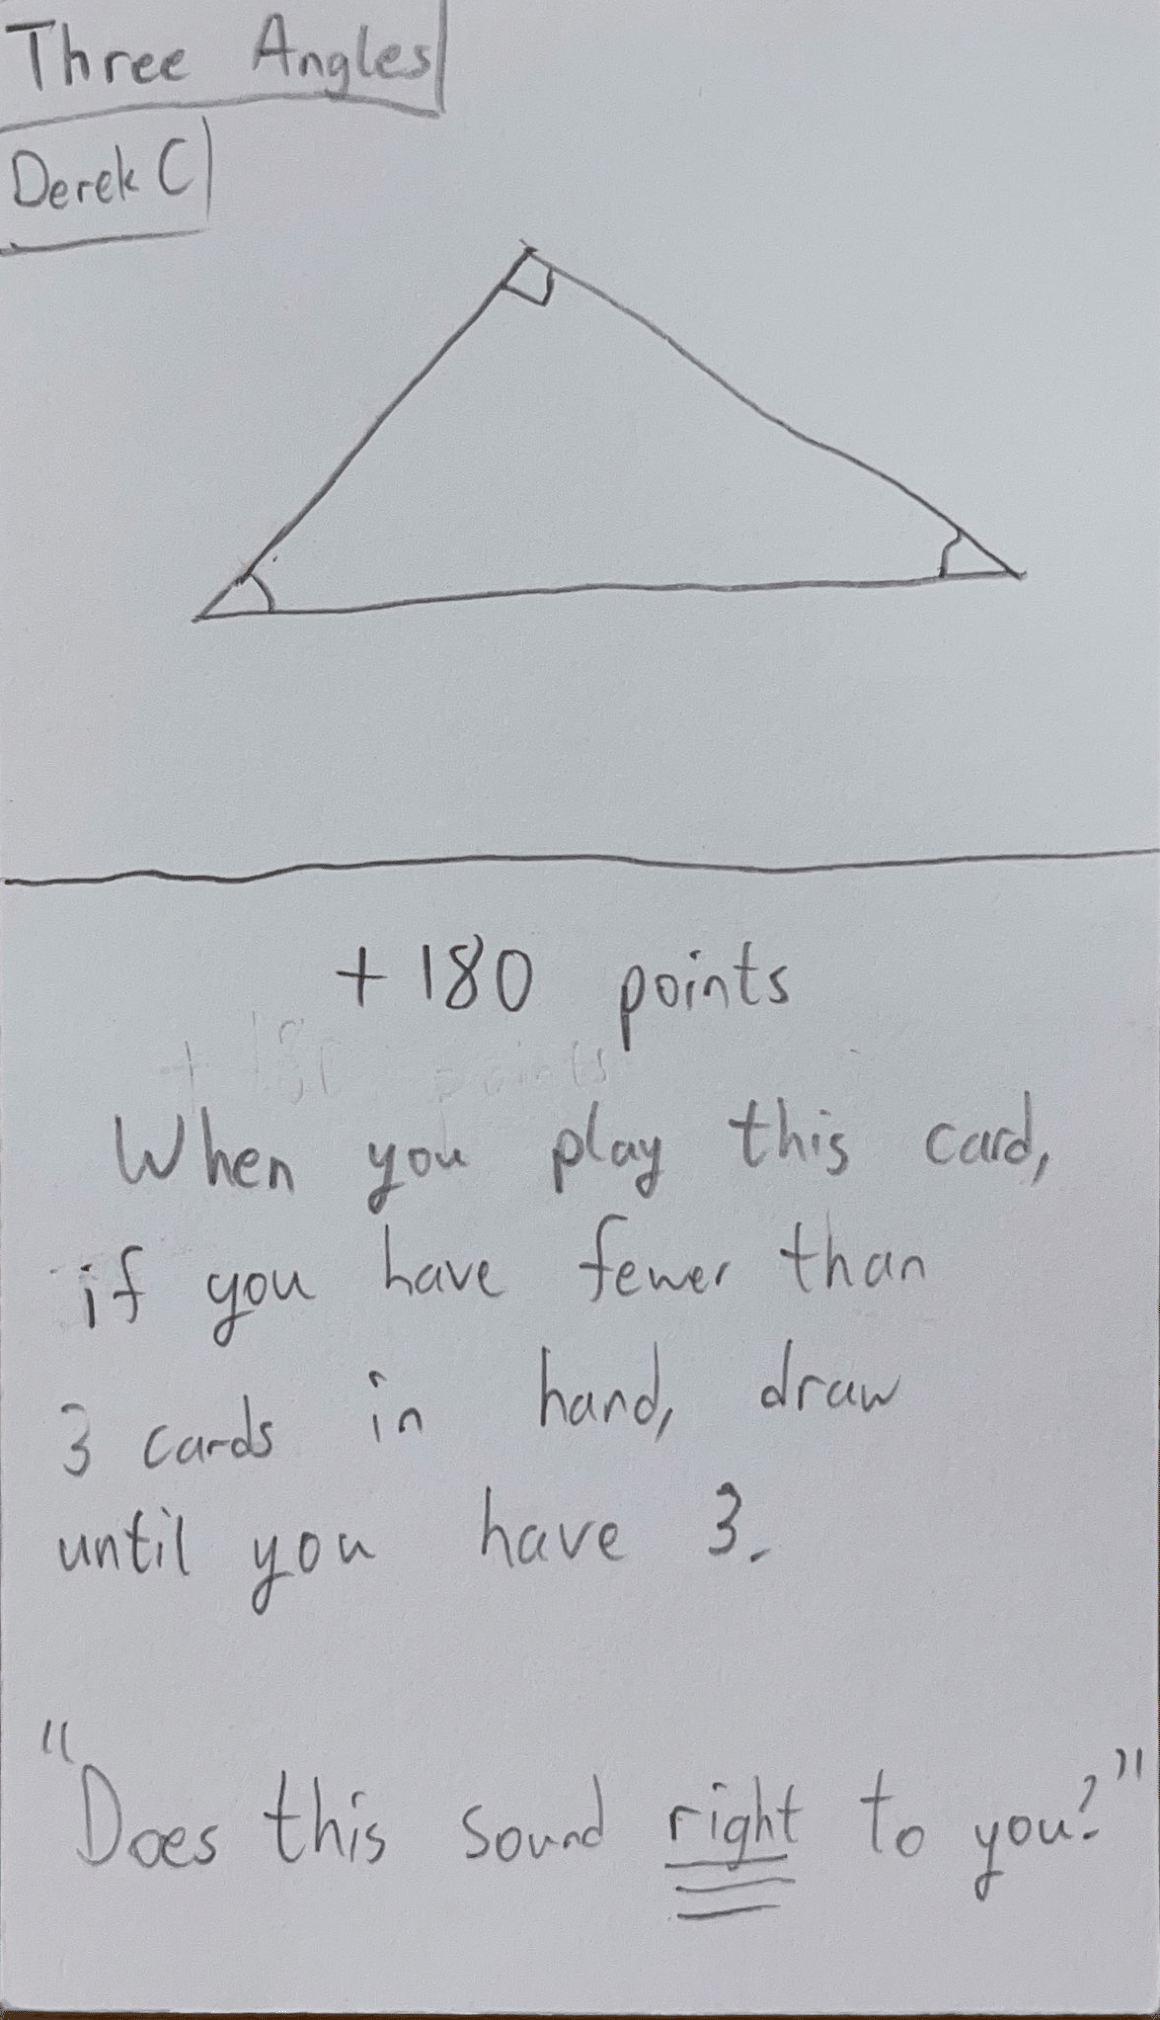 Three Angles
Derek C
+ 180 points
+ 180 points
When you play this card,
if you have fewer than
3 cards in hand, draw
until you have 3.
"Does this sound right to you?"